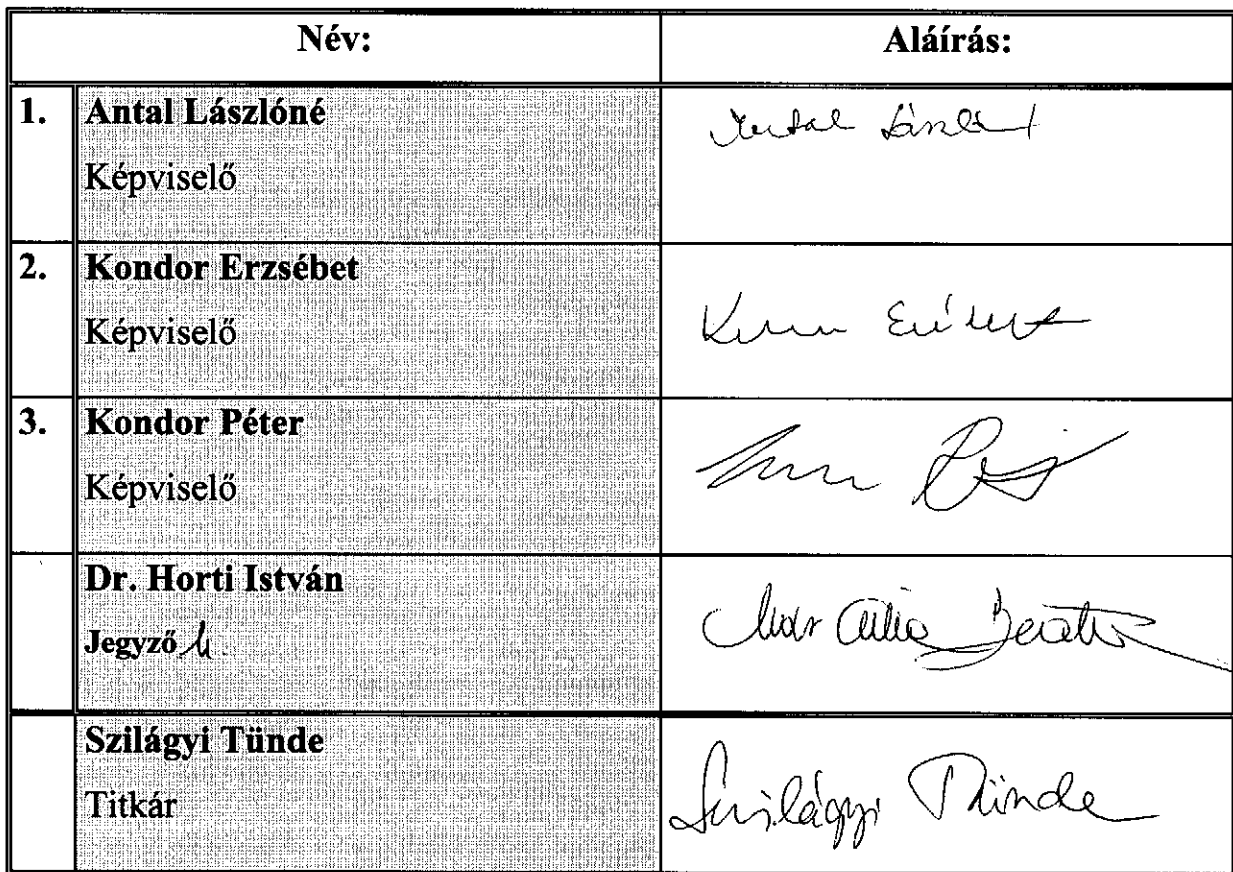 Név: Aláírás:
1. Antal Lászlóné
Képviselő
Antal László
2. Kondor Erzsébet
Képviselő
3. Kondor Péter
Képviselő
Dr. Horti István
Jegyző h.
Szilágyi Tünde
Titkár
Szilágyi Tünde